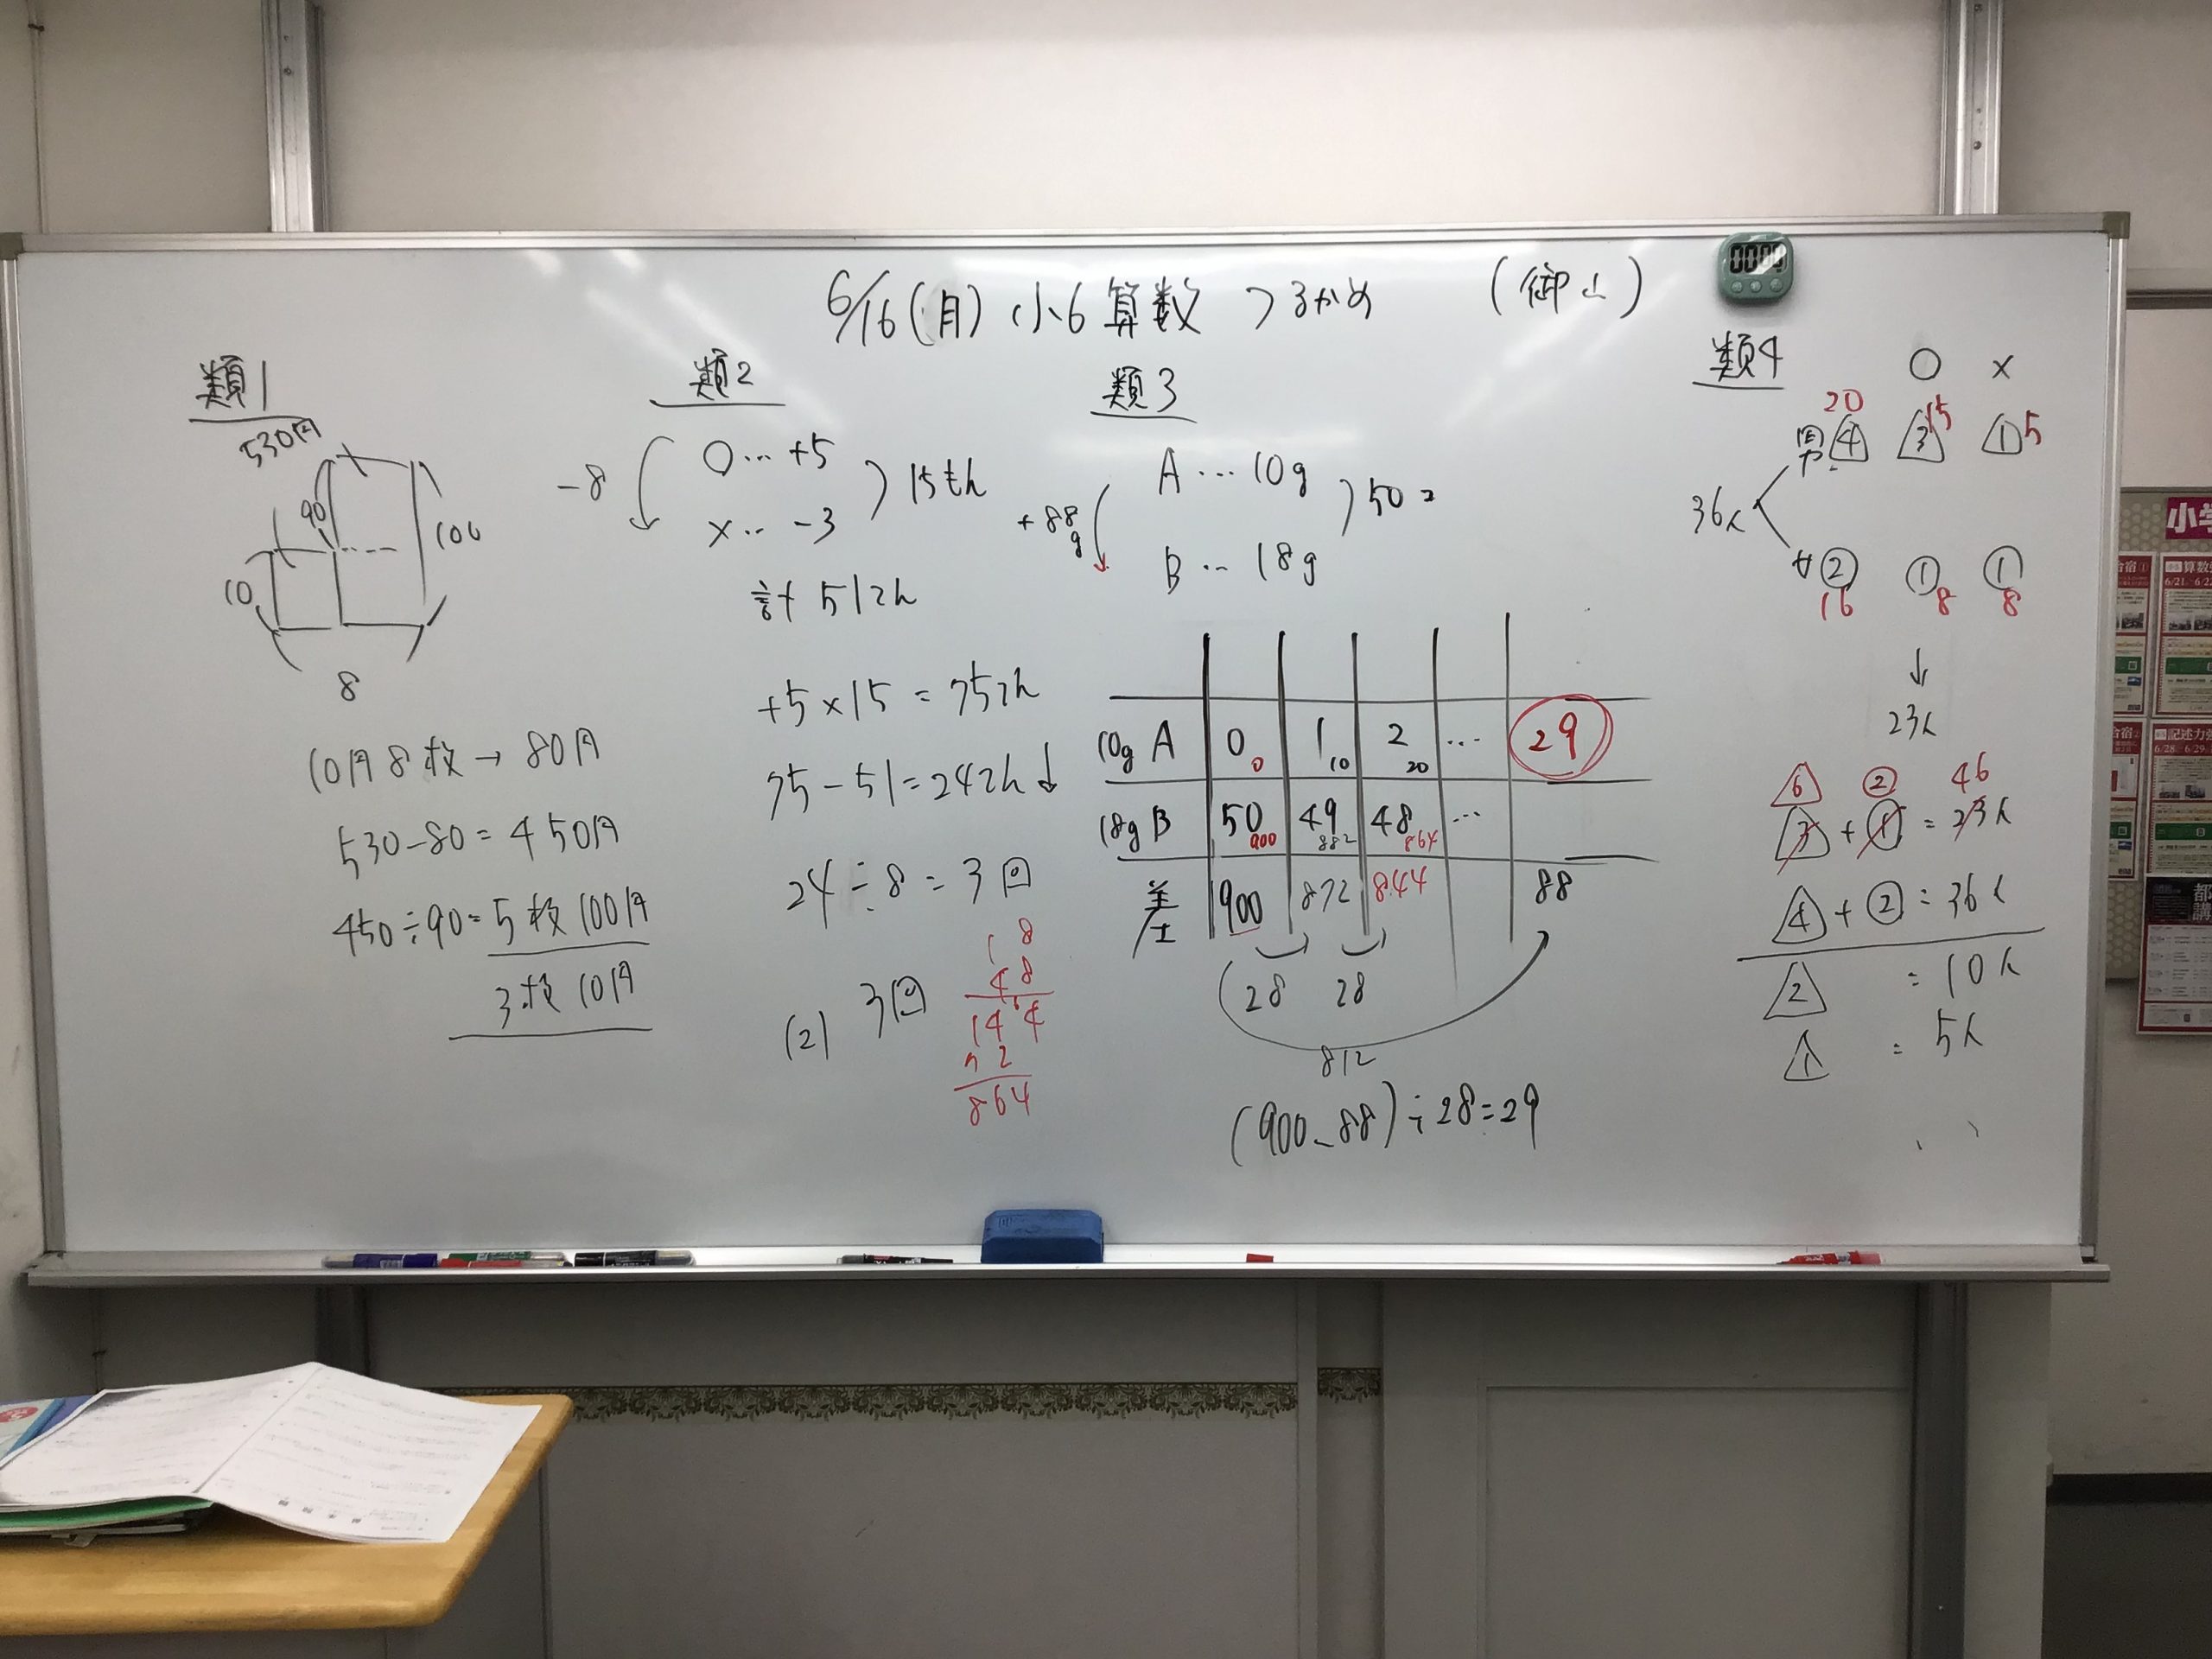 6/16(月) 小6算数 つるかめ (御山)
類1
530円
90
100
10
8
10円8枚→80円
530-80=450円
450÷90=5枚100円
3枚10円
類2
-8
○…+5
×…-3
15もん
計 51てん
+5×15=75てん
75-51=24てん↓
24÷8=3回
(2) 3回
18
48
144
72
864
類3
+88g
A…10g
B…18g
50コ
10g A 0 0 1 10 2 20 … 29
18g B 50 900 49 882 48 864 …
差 900 872 844 88
28 28
812
(900-88)÷28=29
類4
○ ×
20 15 5
男 4 3 1
36人
女 2 1 1
16 8 8
↓
23人
6 2 46
3 + 1 = 23人
4 + 2 = 36人
2 = 10人
1 = 5人
小学
合宿①
算数
6/21.
合宿②
記述力
6/28 6/29
都
講